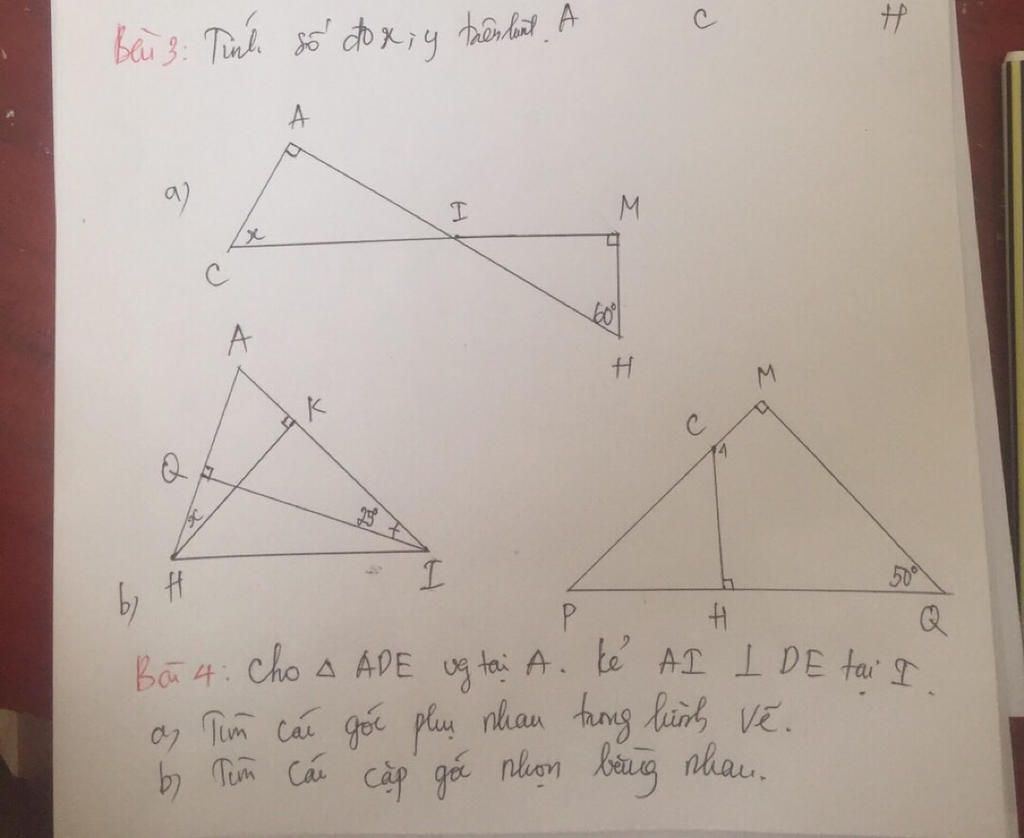 A C H
Bài 3: Tính số đo x; y trên hình.
A
a)
I
M
x
C
60°
H
A
K
M
C
Q
1
x
25°
50°
H
I
b)
P
H
Q
Bài 4: Cho △ ADE vg tại A. kẻ AI ⊥ DE tại I.
a) Tìm các góc phụ nhau trong hình vẽ.
b) Tìm các cặp góc nhọn bằng nhau.